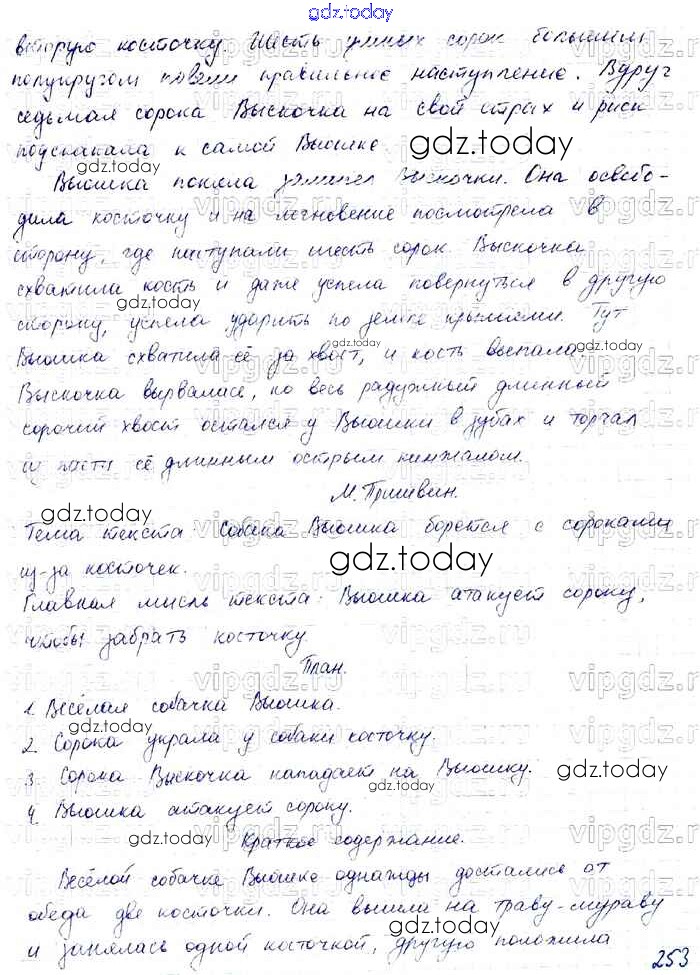 gdz.today
вторую косточку. Шесть умных сорок большим
полукругом повели правильное наступление. Вдруг
седьмая сорока Выскочка на свой страх и риск
подскакала к самой Вьюшке.
gdz.today
Вьюшка поняла замысел Выскочки. Она освобо-
дила косточку и на мгновение посмотрела в
сторону, где наступали шесть сорок. Выскочка
схватила кость и даже успела повернуться в другую
gdz.today
сторону, успела ударить по земле крыльями. Тут
gdz.today
Вьюшка схватила её за хвост, и кость выпала.
gdz.today
Выскочка вырвалась, но весь радужный длинный
сорочий хвост остался у Вьюшки в зубах и торчал
из пасти её длинным острым кинжалом.
М. Пришвин.
gdz.today
Тема текста: Собака Вьюшка борется с сороками
из-за косточек.
gdz.today
Главная мысль текста: Вьюшка атакует сороку,
чтобы забрать косточку
План.
1. Весёлая собачка Вьюшка.
gdz.today
2. Сорока украла у собаки косточку.
3. Сорока Выскочка нападает на Вьюшку.
gdz.today
gdz.today
4. Вьюшка атакует сороку.
gdz.today
Краткое содержание.
Весёлой собачке Вьюшке однажды достались от
обеда две косточки. Она вышла на траву-мураву
и занялась одной косточкой, другую положила
253